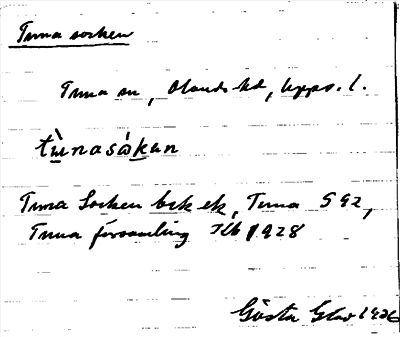 Tuna socken
Tuna sn, Olands hd, Upps. l.
tùnasòkan
Tuna Socken bsk ek, Tuna S 92,
Tuna församling Jlb 1928
Gösta Glav 1926